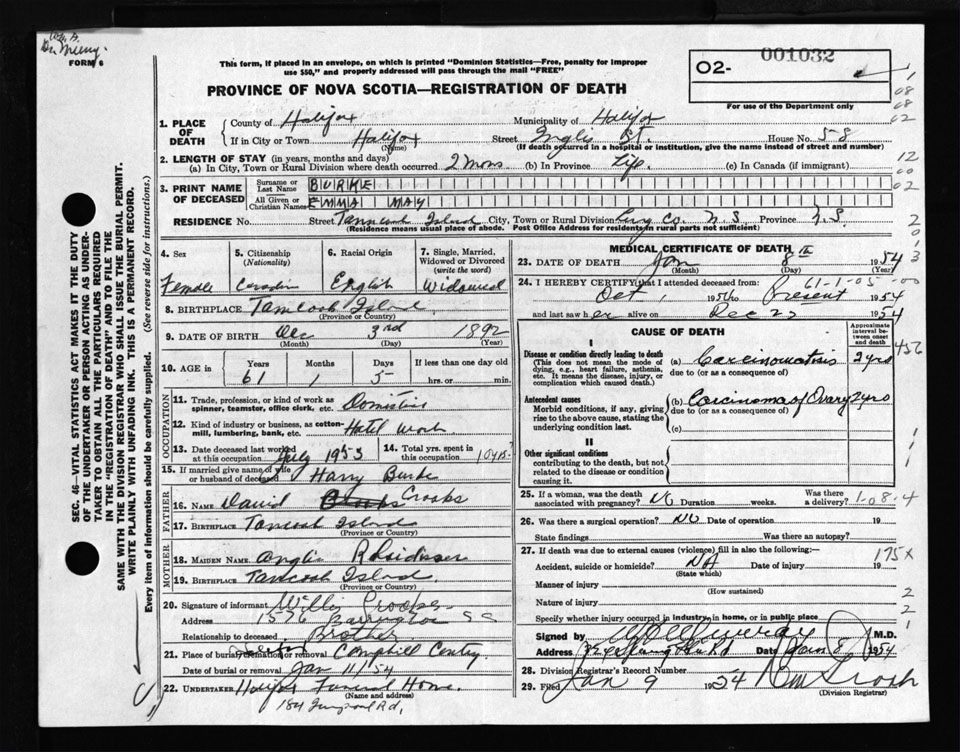 FORM 6
This form, if placed in an envelope, on which is printed "Dominion Statistics—Free, penalty for improper
use $50," and properly addressed will pass through the mail "FREE"
PROVINCE OF NOVA SCOTIA—REGISTRATION OF DEATH
001032
O2-
For use of the Department only
1. PLACE OF DEATH
County of Halifax Municipality of Halifax
If in City or Town Halifax (Name) Street Inglis St. House No. 58
(If death occurred in a hospital or institution, give the name instead of street and number)
2. LENGTH OF STAY (in years, months and days)
(a) In City, Town or Rural Division where death occurred 2 mos (b) In Province Life (c) In Canada (if immigrant)
3. PRINT NAME OF DECEASED
Surname or Last Name BURKE
All Given or Christian Names EMMA MAY
RESIDENCE No. Street Tancook Island City, Town or Rural Division Lug Co. N.S Province N.S.
(Residence means usual place of abode. Post Office Address for residents in rural parts not sufficient)
SEC. 46—VITAL STATISTICS ACT MAKES IT THE DUTY
OF THE UNDERTAKER OR PERSON ACTING AS UNDER-
TAKER TO OBTAIN ALL THE PARTICULARS REQUIRED
IN THE "REGISTRATION OF DEATH" AND TO FILE THE
SAME WITH THE DIVISION REGISTRAR WHO SHALL ISSUE THE BURIAL PERMIT.
WRITE PLAINLY WITH UNFADING INK. THIS IS A PERMANENT RECORD.
Every item of information should be carefully supplied. (See reverse side for instructions.)
4. Sex Female
5. Citizenship (Nationality)
6. Racial Origin English
7. Single, Married, Widowed or Divorced (write the word) Widowed
8. BIRTHPLACE Tancook Island
(Province or Country)
9. DATE OF BIRTH Dec 3rd 1892
(Month) (Day) (Year)
10. AGE in Years 61 Months 1 Days 5 If less than one day old hrs. or min.
OCCUPATION
11. Trade, profession or kind of work as spinner, teamster, office clerk, etc. Domestic
12. Kind of industry or business, as cotton-mill, lumbering, bank, etc. Hotel Work
13. Date deceased last worked at this occupation July 1953
14. Total yrs. spent in this occupation 10 yrs?
15. If married give name of wife or husband of deceased Harry Burke
FATHER
16. NAME David Crooks
17. BIRTHPLACE Tancook Island
(Province or Country)
MOTHER
18. MAIDEN NAME
19. BIRTHPLACE Tancook Island
(Province or Country)
20. Signature of informant Willis Crooks
Address 1576 Barrington St
Relationship to deceased Brother
21. Place of burial, cremation or removal Camphill Cemtry
Date of burial or removal Jan 11/54
22. UNDERTAKER Halifax Funeral Home.
(Name and address)
184 Rd,
MEDICAL CERTIFICATE OF DEATH
23. DATE OF DEATH Jan 8th 1954
(Month) (Day) (Year)
61-1-05-00
24. I HEREBY CERTIFY that I attended deceased from:
Oct, 1954 to Present 1954
and last saw her alive on Dec 1954
CAUSE OF DEATH
Approximate interval between onset and death
I
Disease or condition directly leading to death
(This does not mean the mode of dying, e.g., heart failure, asthenia, etc. It means the disease, injury, or complication which caused death.)
(a) Carcinomatosis 2 yrs
due to (or as a consequence of)
Antecedent causes
Morbid conditions, if any, giving rise to the above cause, stating the underlying condition last.
(b) Carcinoma of Ovary 2 yrs
due to (or as a consequence of)
(c)
II
Other significant conditions
contributing to the death, but not related to the disease or condition causing it.
25. If a woman, was the death associated with pregnancy? NO Duration weeks. Was there a delivery? 1-08-4
26. Was there a surgical operation? NO Date of operation 19
State findings Was there an autopsy?
27. If death was due to external causes (violence) fill in also the following:—
Accident, suicide or homicide? NA Date of injury 19
(State which)
175X
Manner of injury
(How sustained)
Nature of injury
Specify whether injury occurred in industry, in home, or in public place
Signed by M.D.
Address Date Jan 8, 1954
28. Division Registrar's Record Number
29. Filed Jan 9 1954
(Division Registrar)